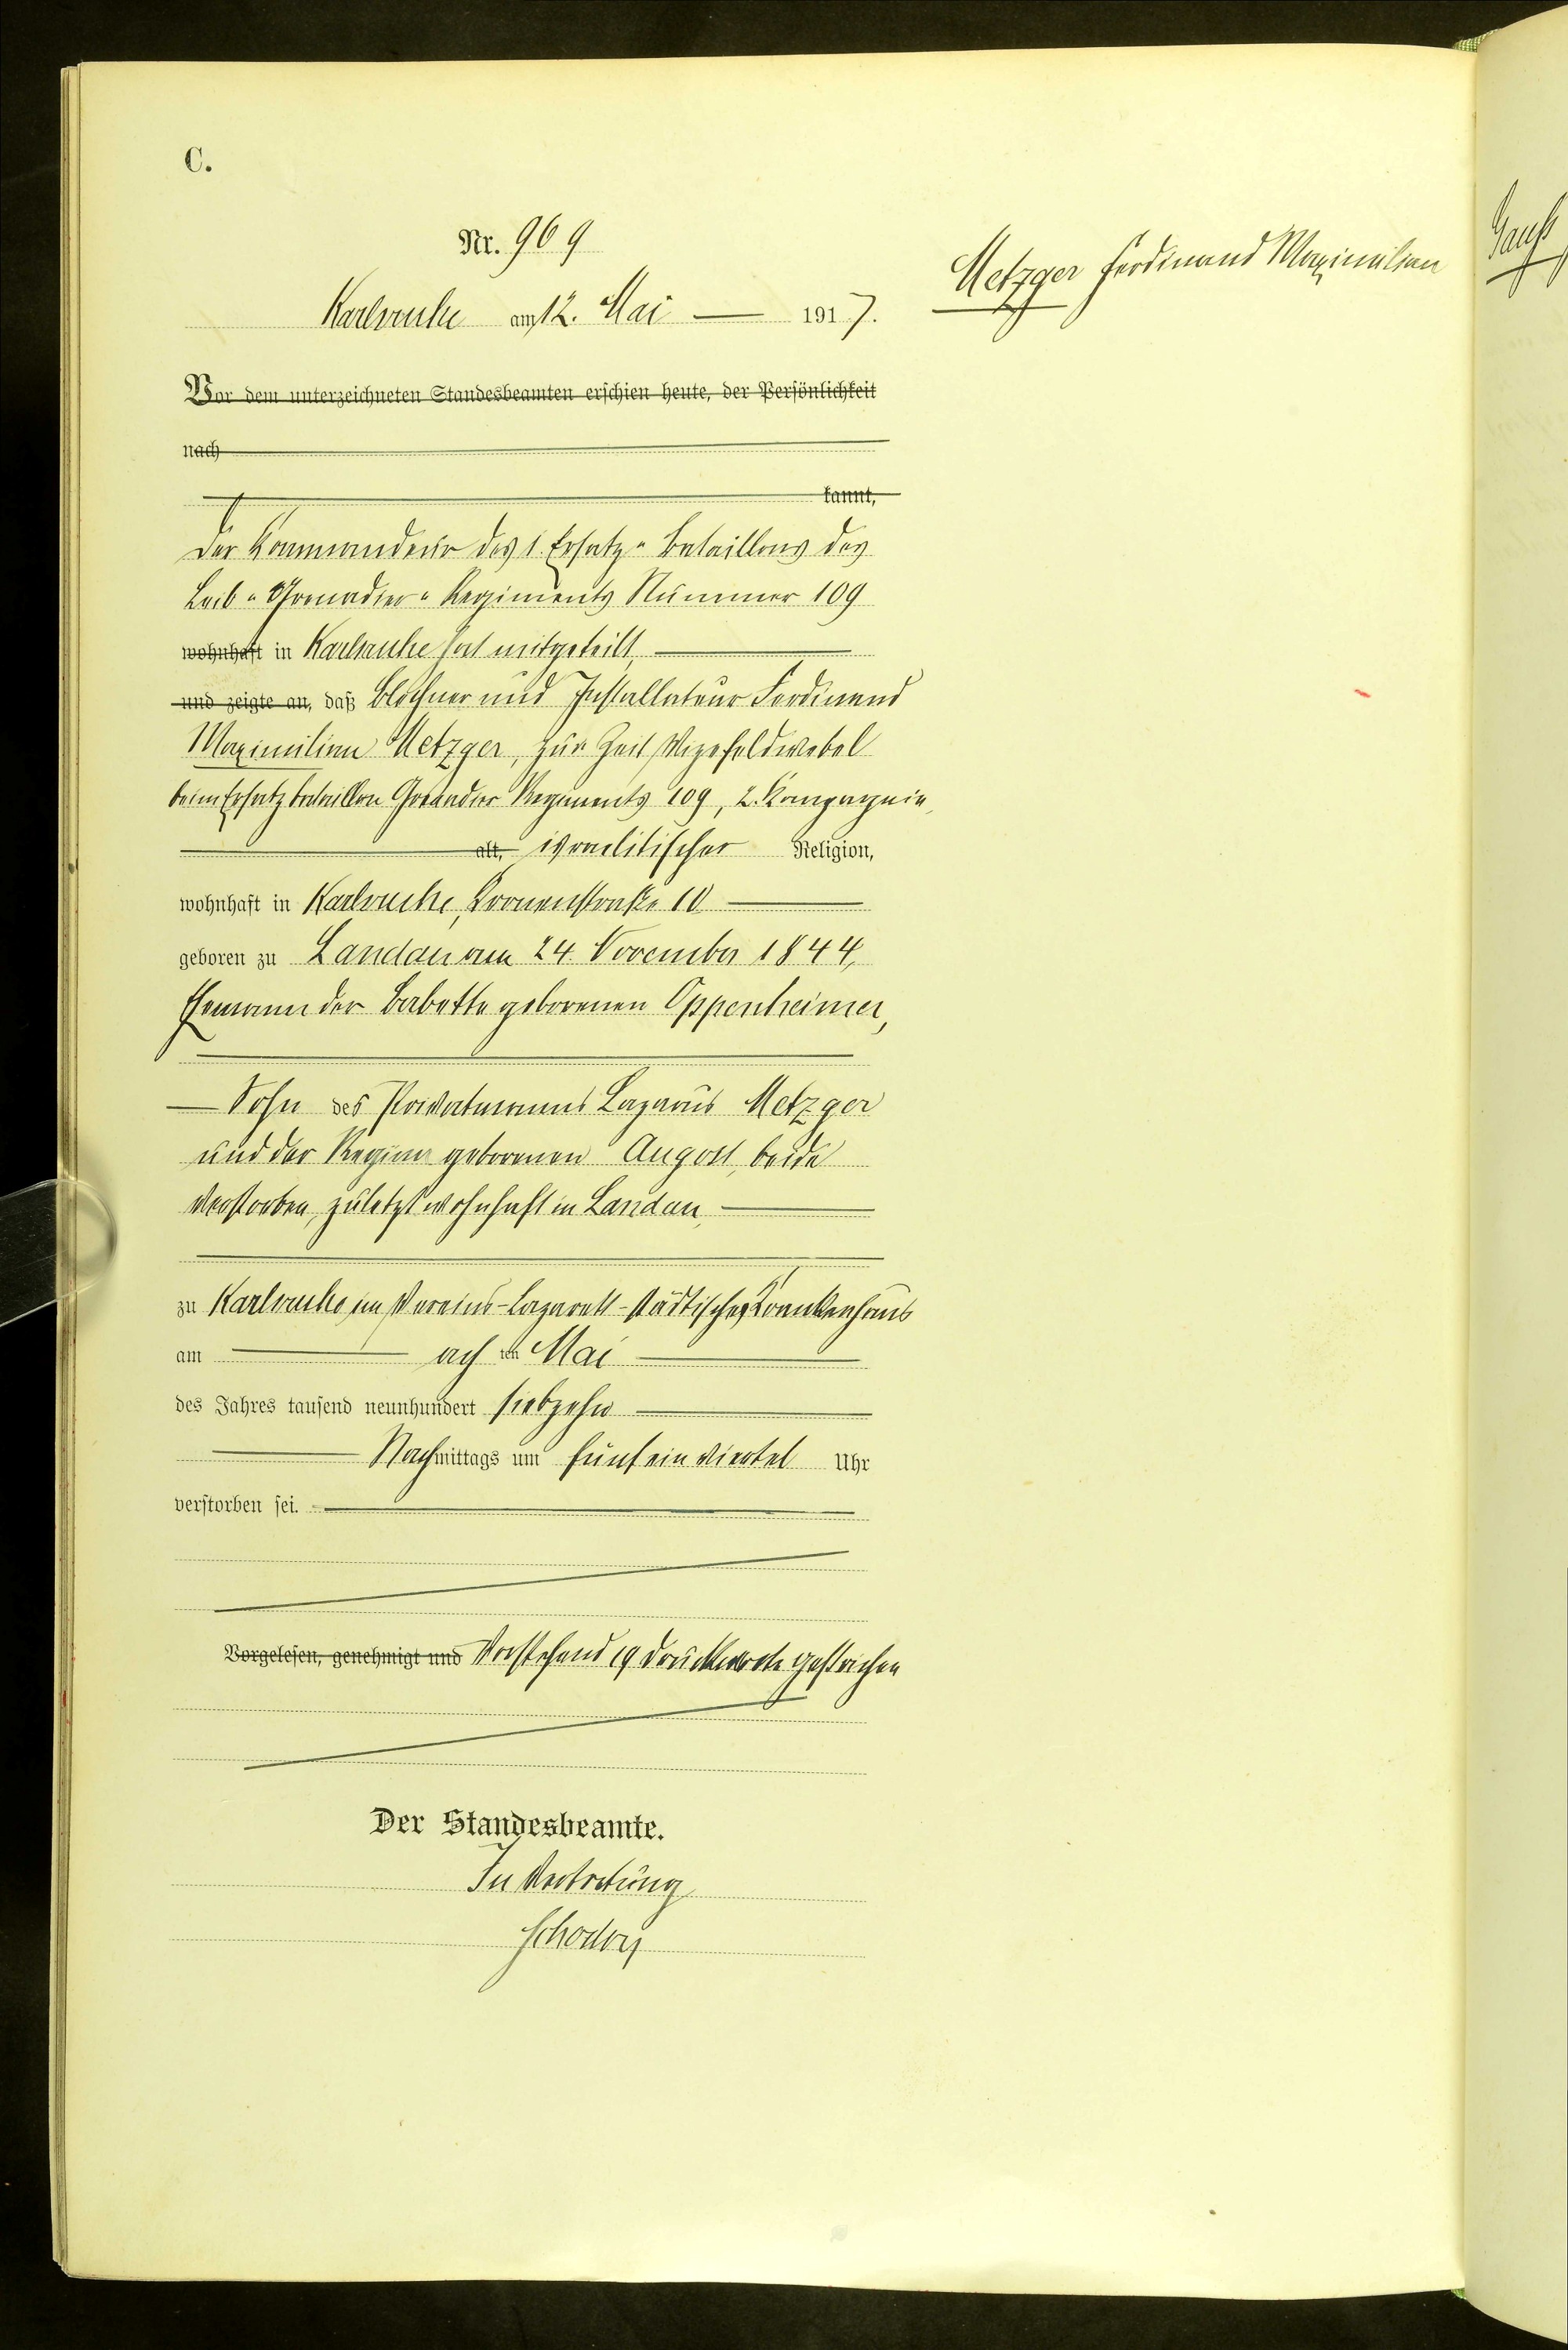 C.
Nr. 969
Metzger Ferdinand Maximilian
Karlsruhe am 12. Mai 1917.
Vor dem unterzeichneten Standesbeamten erschien heute, der Persönlichkeit
nach
kannt,
Der Kommandeur des 1. Ersatz-Bataillons des
Leib-Grenadier-Regiments Nummer 109
wohnhaft in Karlsruhe hat mitgeteilt,
und zeigte an, daß Blechner und Installateur Ferdinand
Maximilian Metzger, zur Zeit Vizefeldwebel
beim Ersatzbataillon Grenadier Regiments 109, 2. Kompagnie,
alt, israelitischer Religion,
wohnhaft in Karlsruhe, Kronenstraße 10
geboren zu Landau am 24. November 1844,
Ehemann der Babette geborenen Oppenheimer,
Sohn des Privatmanns Lazarus Metzger
und der Regina geborenen August, beide
verstorben, zuletzt wohnhaft in Landau,
zu Karlsruhe im Vereins-Lazarett-städtisches Krankenhaus
am achten Mai
des Jahres tausend neunhundert siebzehn
Nachmittags um fünf ein viertel Uhr
verstorben sei.
Vorgelesen, genehmigt und Vorstehend 19 Druckworte gestrichen
Der Standesbeamte.
In Vertretung